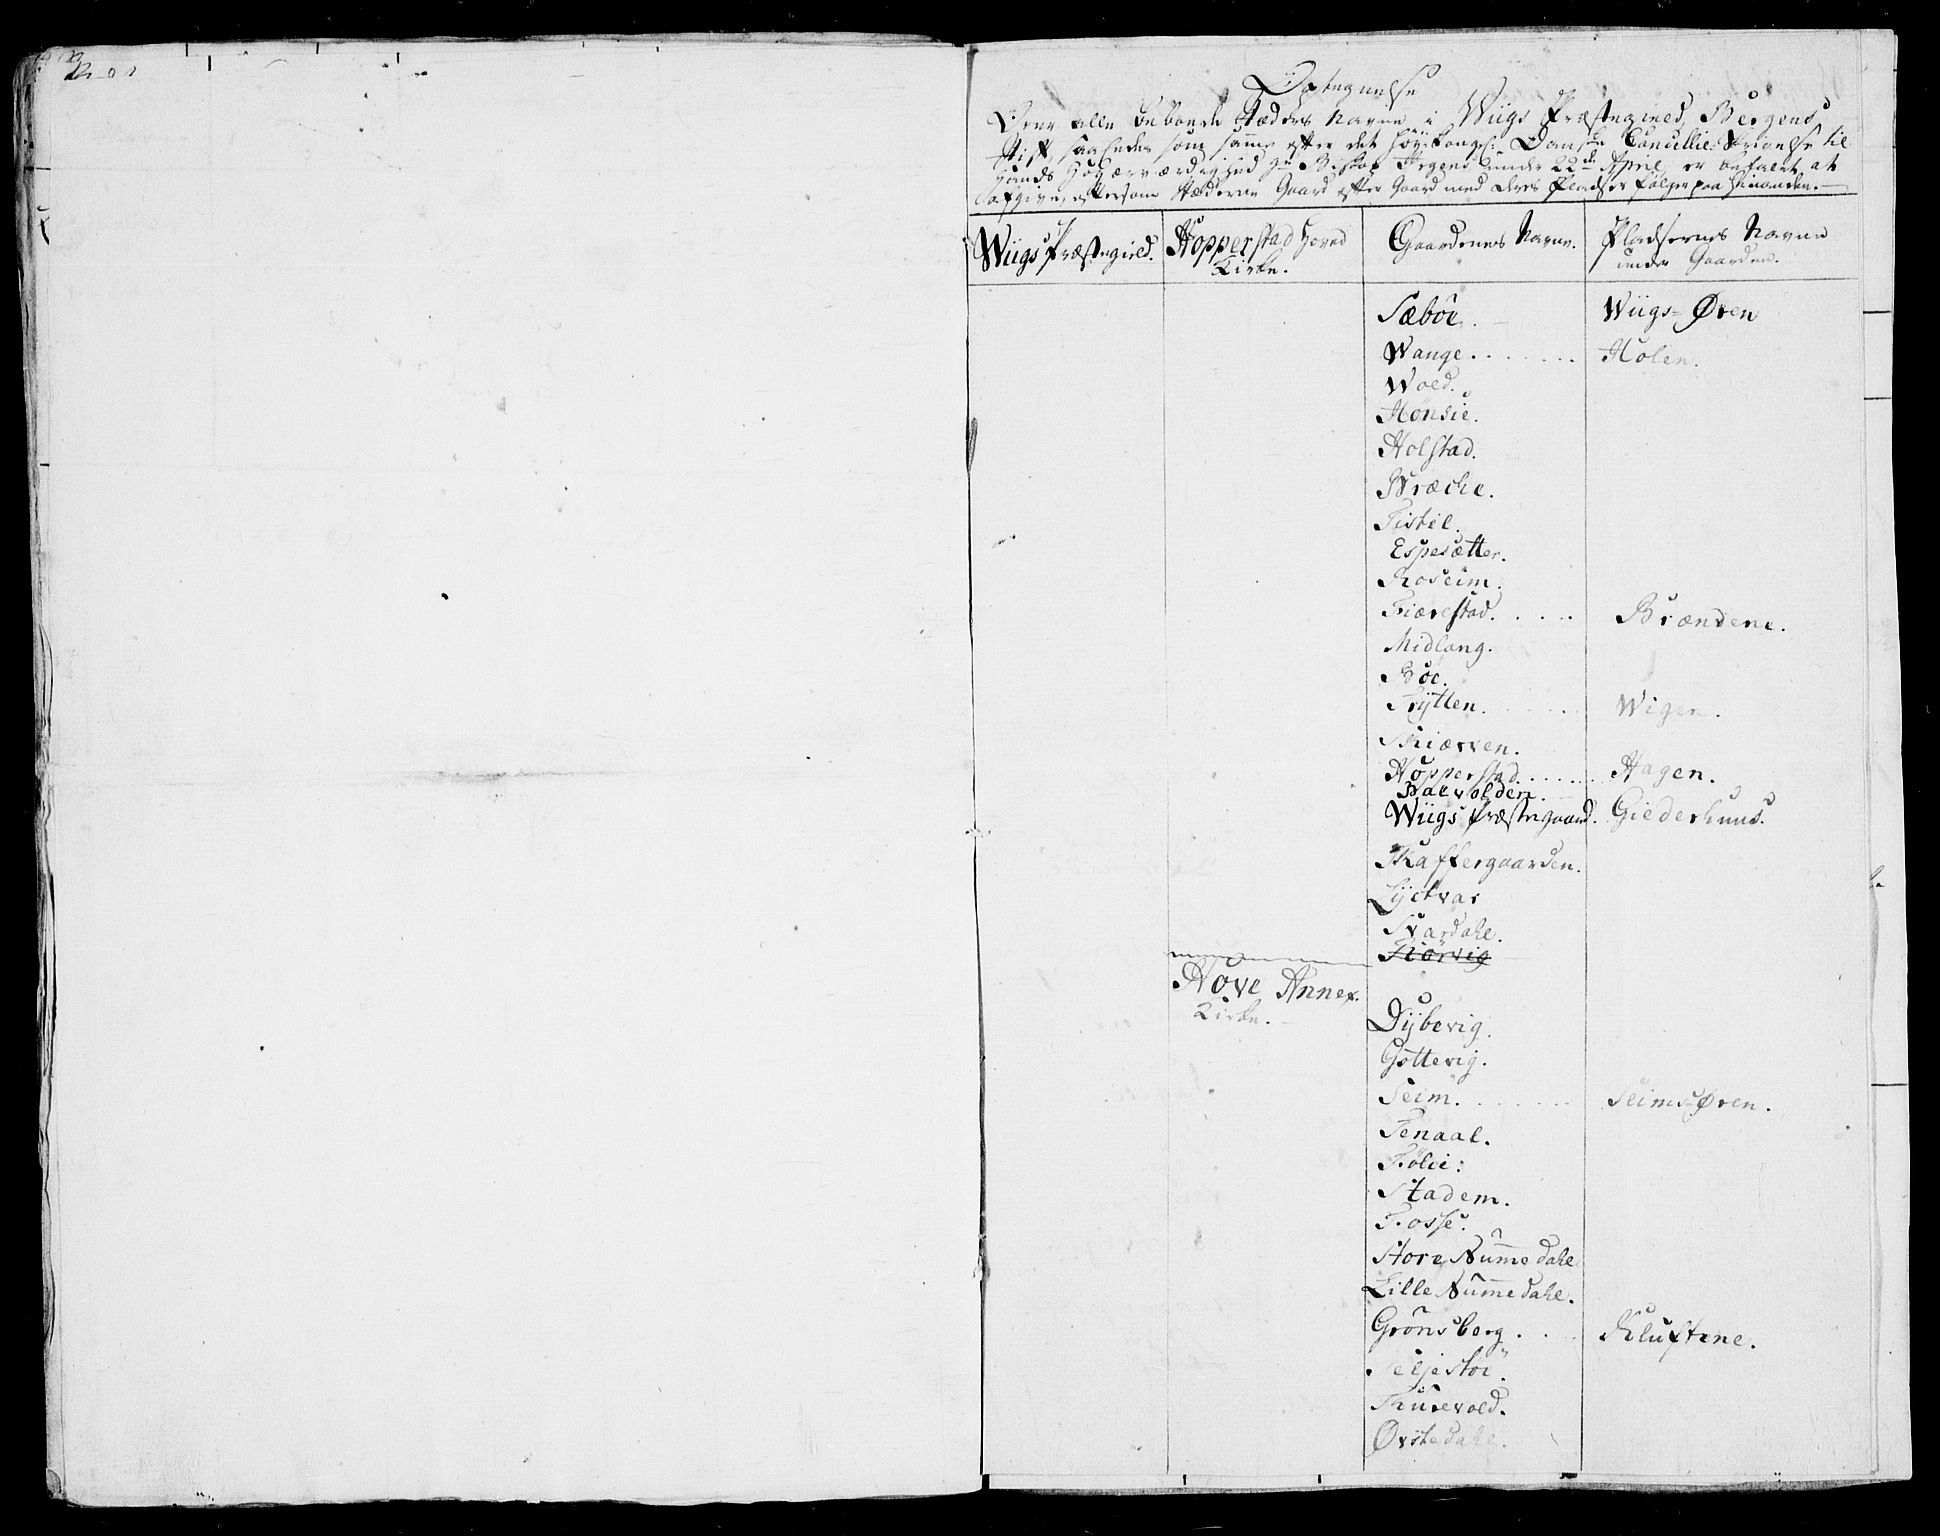 Optegnelse
Over alle beboede Stæders Navne i Wiigs Præstegield, Bergens
Stift, saaledes som samme efter det høye Kongel: Danske Cancellie Skrivelse til
Hands Høyærværdighed Hr Biskop Irgens under 22de April, er befalet at
afgive, eftersom Stæderne Gaard efter Gaard med deres Pladser følger paa hinanden.
Wiigs Præstegield. Hopperstad Hoved Gaardenes Navne. Pladsernes Navne
Kirke. under Gaarden.
Sæbôe. Wiigs-Øren
Wange. . . . . . . Holen.
Wold.
Hönsie.
Holstad.
Bræche.
Tistel.
Espesætter.
Roseim.
Fiærestad. . . . . Brændene.
Midlang.
Böe.
Trytten. . . . . Wigen.
Skiærven.
Hopperstad. . . . . . Hagen.
Balvolden.
Wiigs Præstegaard. Giederhuus.
Skaffergaarden.
Lyckvar
Svardahl.
Kiörvig
Hove Annex.
Kirke.
Dybevig.
Gottevig.
Seim. . . . . . . Seims-Øren.
Tenaal.
Fölie.
Stadem.
Fosse.
Store Numedahl
Lille Numedahl.
Grönsberg. . . . Kluftene.
Seljestöe.
Turvold.
Øvstedahl.